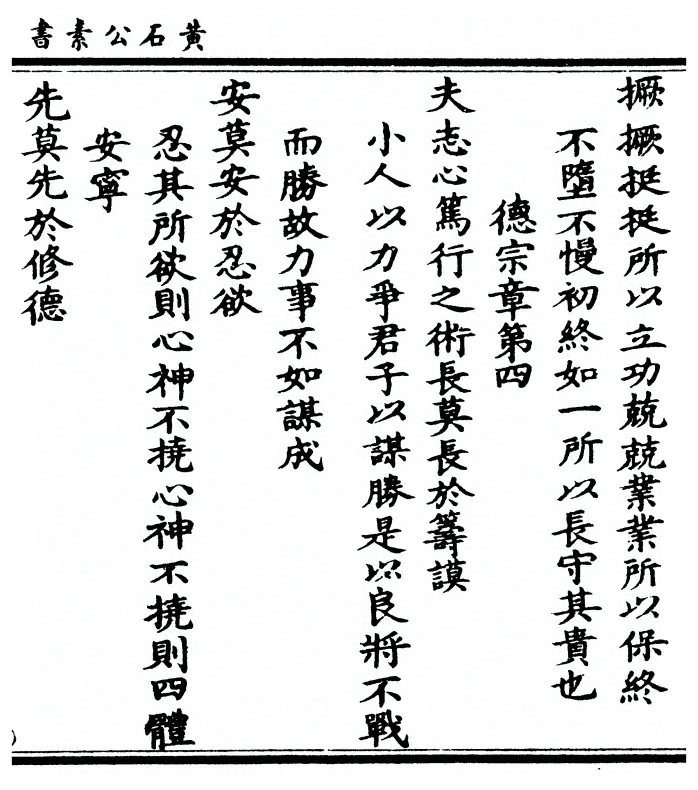 黃石公素書
撅撅挺挺所以立功兢兢業業所以保終
不墮不慢初終如一所以長守其貴也
德宗章第四
夫志心篤行之術長莫長於籌謨
小人以力爭君子以謀勝是以良將不戰
而勝故力事不如謀成
安莫安於忍欲
忍其所欲則心神不撓心神不撓則四體
安寧
先莫先於修德